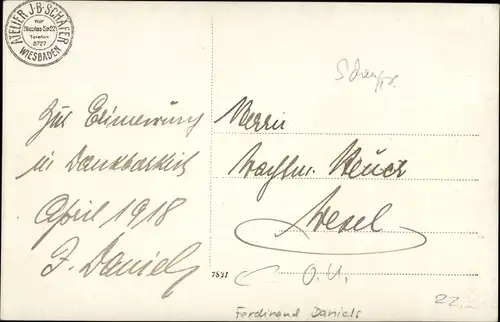 ATELIER J·B·SCHÄFER
nur
Nicolas Str 22
Telefon
8727
WIESBADEN
Zur Erinnerung
in Dankbarkeit
April 1918
F. Daniels
Herrn
Wachtm.
Wesel
O. U.
7531
22.
Ferdinand Daniels